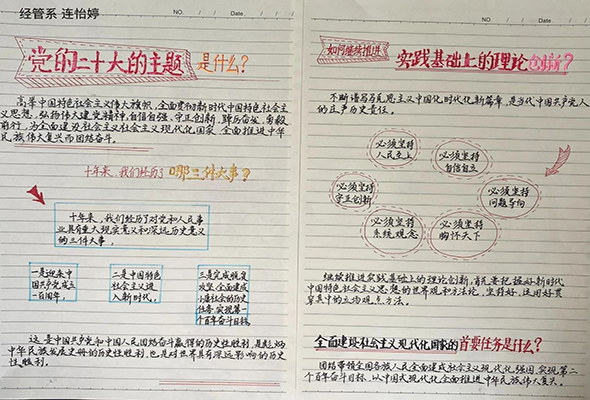 经管系 连怡婷
NO. / / Date
党的二十大的主题是什么?
高举中国特色社会主义伟大旗帜,全面贯彻新时代中国特色社会主
义思想,弘扬伟大建党精神,自信自强、守正创新,踔厉奋发、勇毅
前行,为全面建设社会主义社会主义现代化国家、全面推进中华
民族伟大复兴而团结奋斗。
十年来,我们经历了哪三件大事?
十年来,我们经历了对党和人民事
业具有重大现实意义和深远历史意义
的三件大事。
一是迎来中
国共产党成立
一百周年,
二是中国特色
社会主义进
入新时代,
三是完成脱贫
攻坚、全面建成
小康社会的历史
任务,实现第一
个百年奋斗目标。
这是中国共产党和中国人民团结奋斗赢得的历史性胜利,是彪炳
中华民族发展史册的历史性胜利,也是对世界具有深远影响的历史
性胜利。
NO. / / Date
如何继续推进
实践基础上的理论创新?
不断谱写马克思主义中国化时代化新篇章,是当代中国共产党人
的庄严历史责任。
必须坚持
人民至上
必须坚持
自信自立
必须坚持
守正创新
必须坚持
问题导向
必须坚持
系统观念
必须坚持
胸怀天下
继续推进实践基础上的理论创新,首先要把握好新时代
中国特色社会主义思想的世界观和方法论,坚持好、运用好贯
穿其中的立场观点方法。
全面建设社会主义现代化国家的首要任务是什么?
团结带领全国各族人民全面建成社会主义现代化强国、实现第二
个百年奋斗目标,以中国式现代化全面推进中华民族伟大复兴。